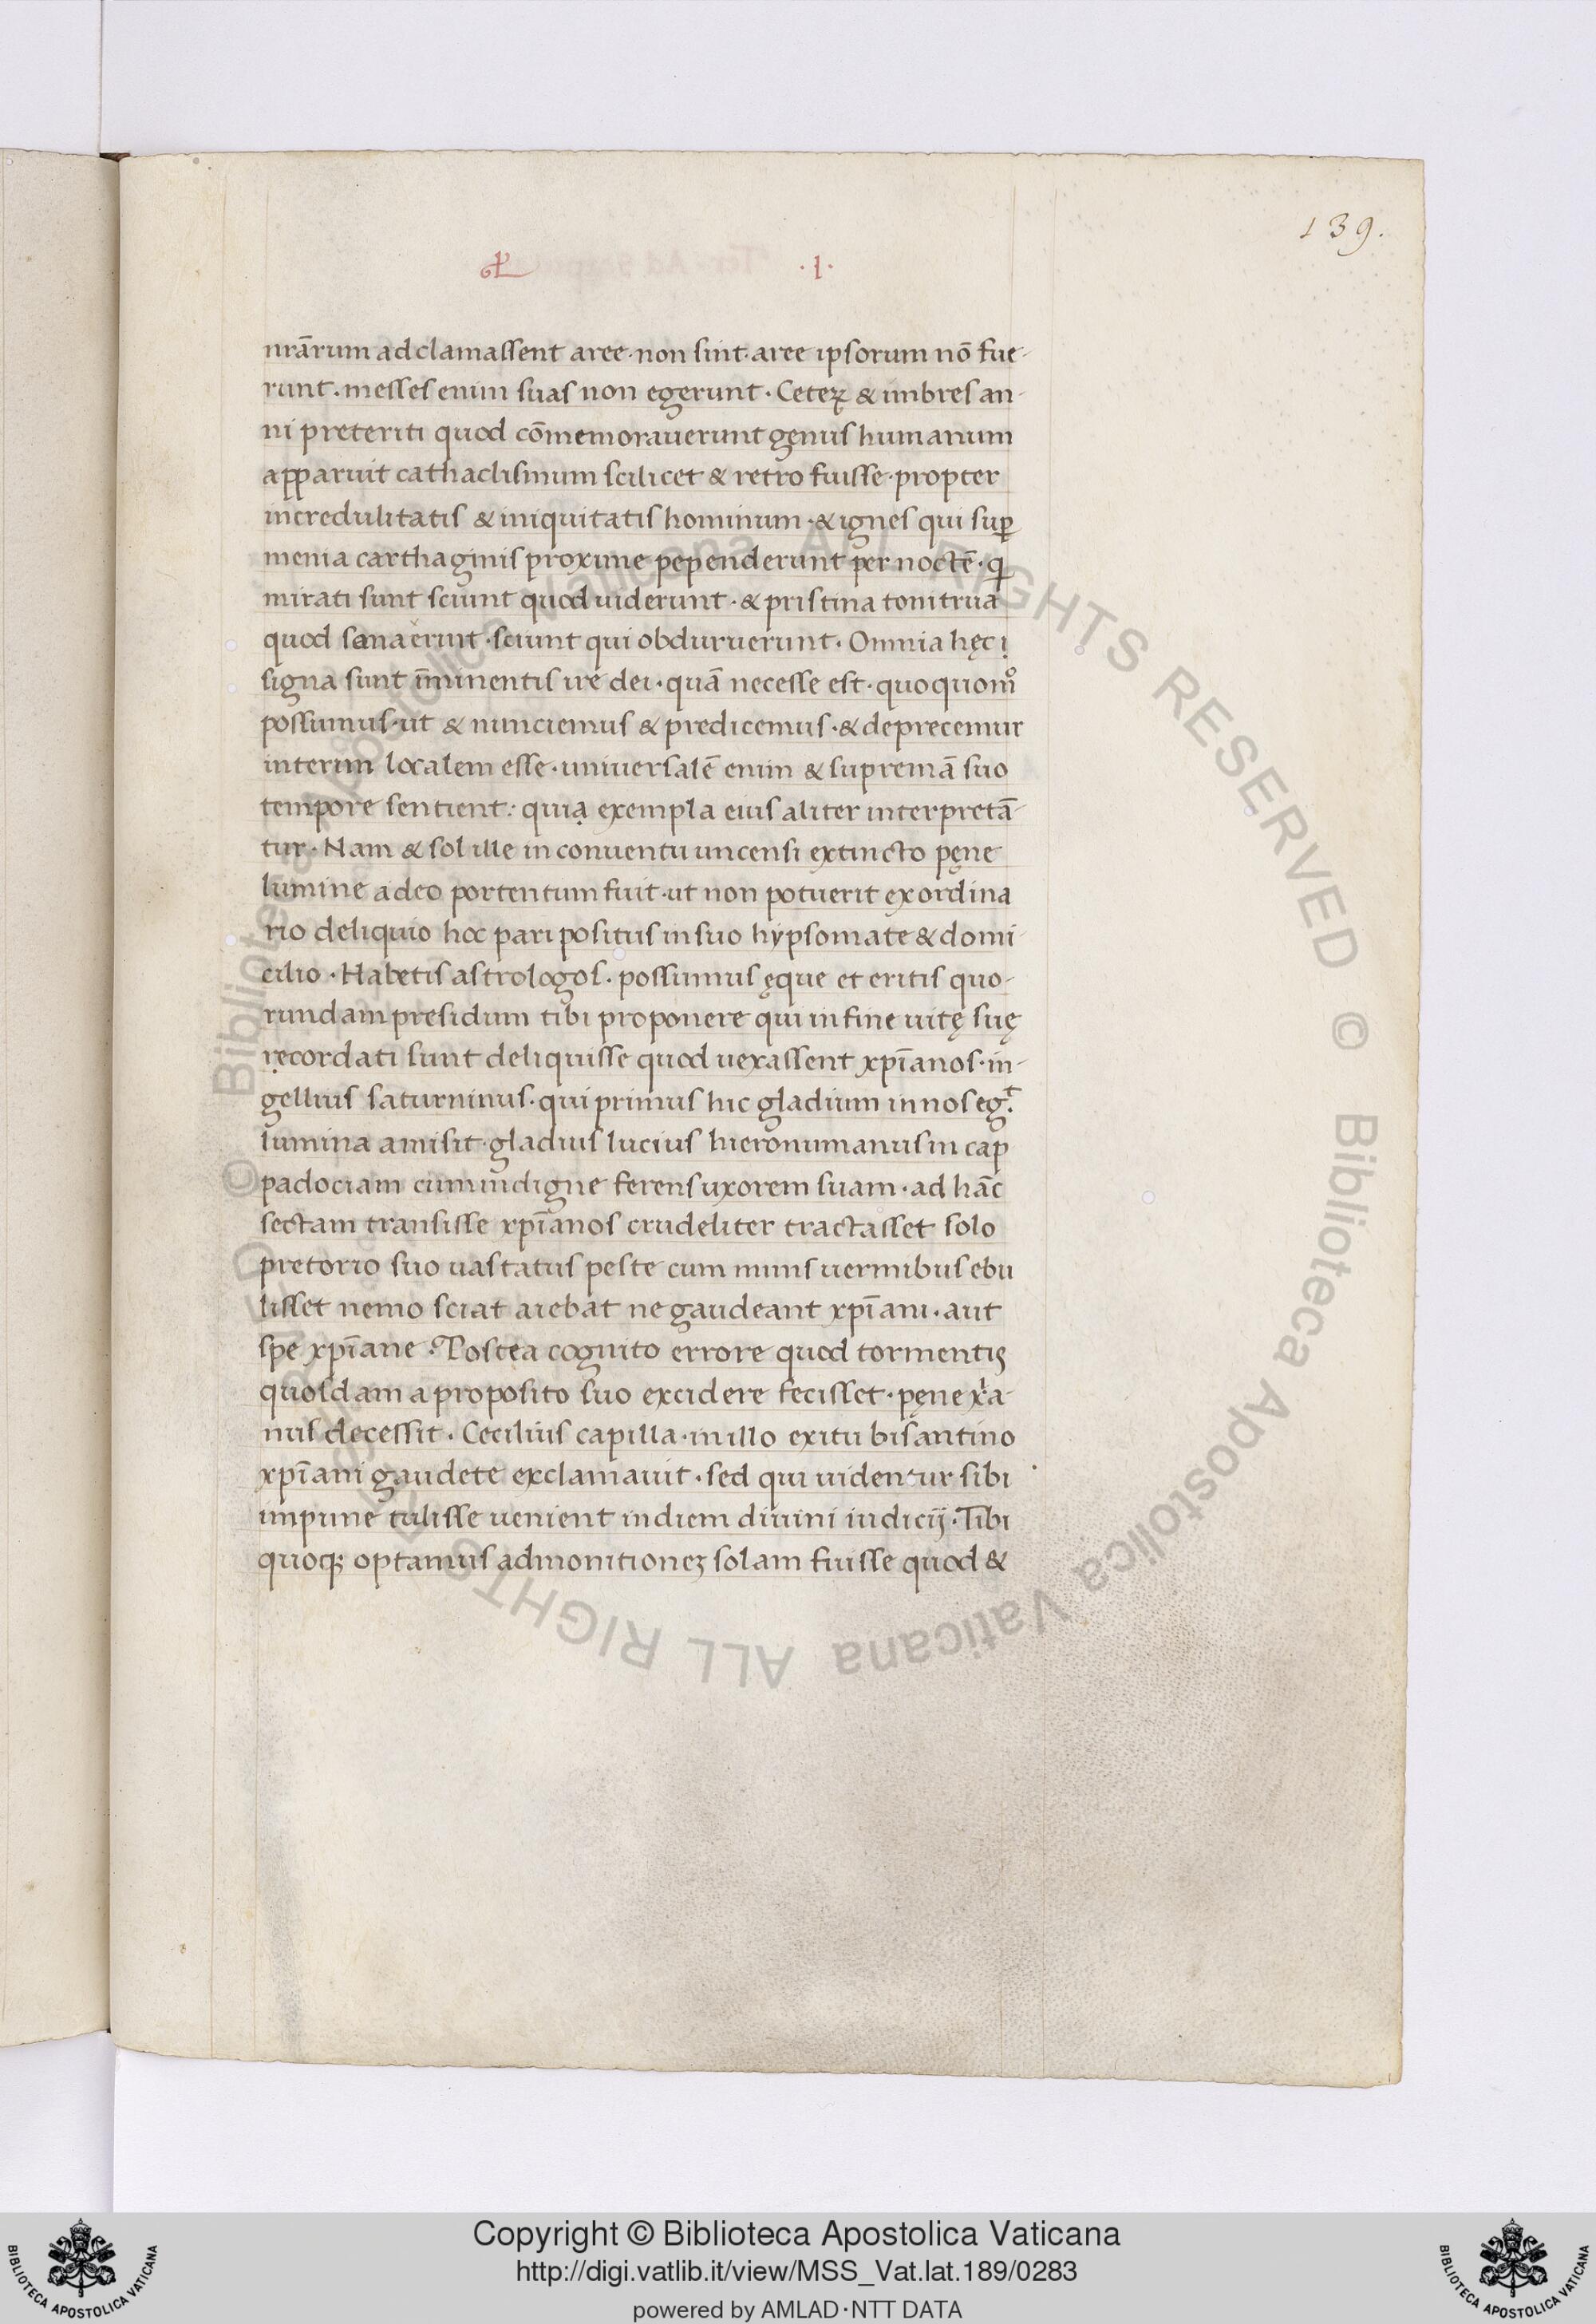 139.
·I·
nr̄arum adclamassent aree · non sint · aree ipsorum nō fue-
runt · messes enim suas non egerunt · Ceteꝝ & imbres an-
ni preteriti quod cōmemorauerunt genus humanum
apparuit cathaclismum scilicet & retro fuisse · propter
incredulitatis & iniquitatis hominum · & ignes qui suꝑ
menia carthaginis proxime pependerunt per noctē · q
mirati sunt sciunt quod uiderunt · & pristina tonitrua
quod sonaerunt · sciunt qui obduruerunt · Omnia hęc
signa sunt īminentis ire dei · quā necesse est · quoquomͦ
possumus · ut & nunciemus & predicemus · & deprecemur
interim localem esse · uniuersalē enim & supremā suo
tempore sentient : quia exempla eius aliter interpretā
tur · Nam & sol ille in conuentu uncensi extincto pęne
lumine adeo portentum fuit · ut non potuerit ex ordina
rio deliquio hoc pari positus in suo hypsomate & domi
cilio · Habetis astrologos · possumus ęque et eritis quo-
rundam presidum tibi proponere qui in fine uitę suę
recordati sunt deliquisse quod uexassent xp̄ianos · in-
gellius saturninus · qui primus hic gladium in nos eg.t
lumina amisit · gladius lucius hieronumanus in cap
padociam cum indigne ferens uxorem suam · ad hāc
sectam transisse xp̄ianos crudeliter tractasset solo
pretorio suo uastatus peste cum muis uermibus ebu
lisset nemo sciat aiebat ne gaudeant xp̄iani · aut
spe xp̄iane · Postea cognito errore quod tormentis
quosdam a proposito suo excidere fecisset · pęne x̄ia-
nus decessit · Cecilius capilla · in illo exitu bisantino
xp̄iani gaudete exclamauit · sed qui uidentur sibi
impune tulisse uenient in diem diuini iudicij · Tibi
quoqꝫ optamus admonitioneꝫ solam fuisse quod &
© Biblioteca Apostolica Vaticana ALL RIGHTS RESERVED © Biblioteca Apostolica Vaticana ALL RIGHTS RESERVED
Copyright © Biblioteca Apostolica Vaticana
http://digi.vatlib.it/view/MSS_Vat.lat.189/0283
powered by AMLAD·NTT DATA
BIBLIOTECA APOSTOLICA VATICANA
BIBLIOTECA APOSTOLICA VATICANA